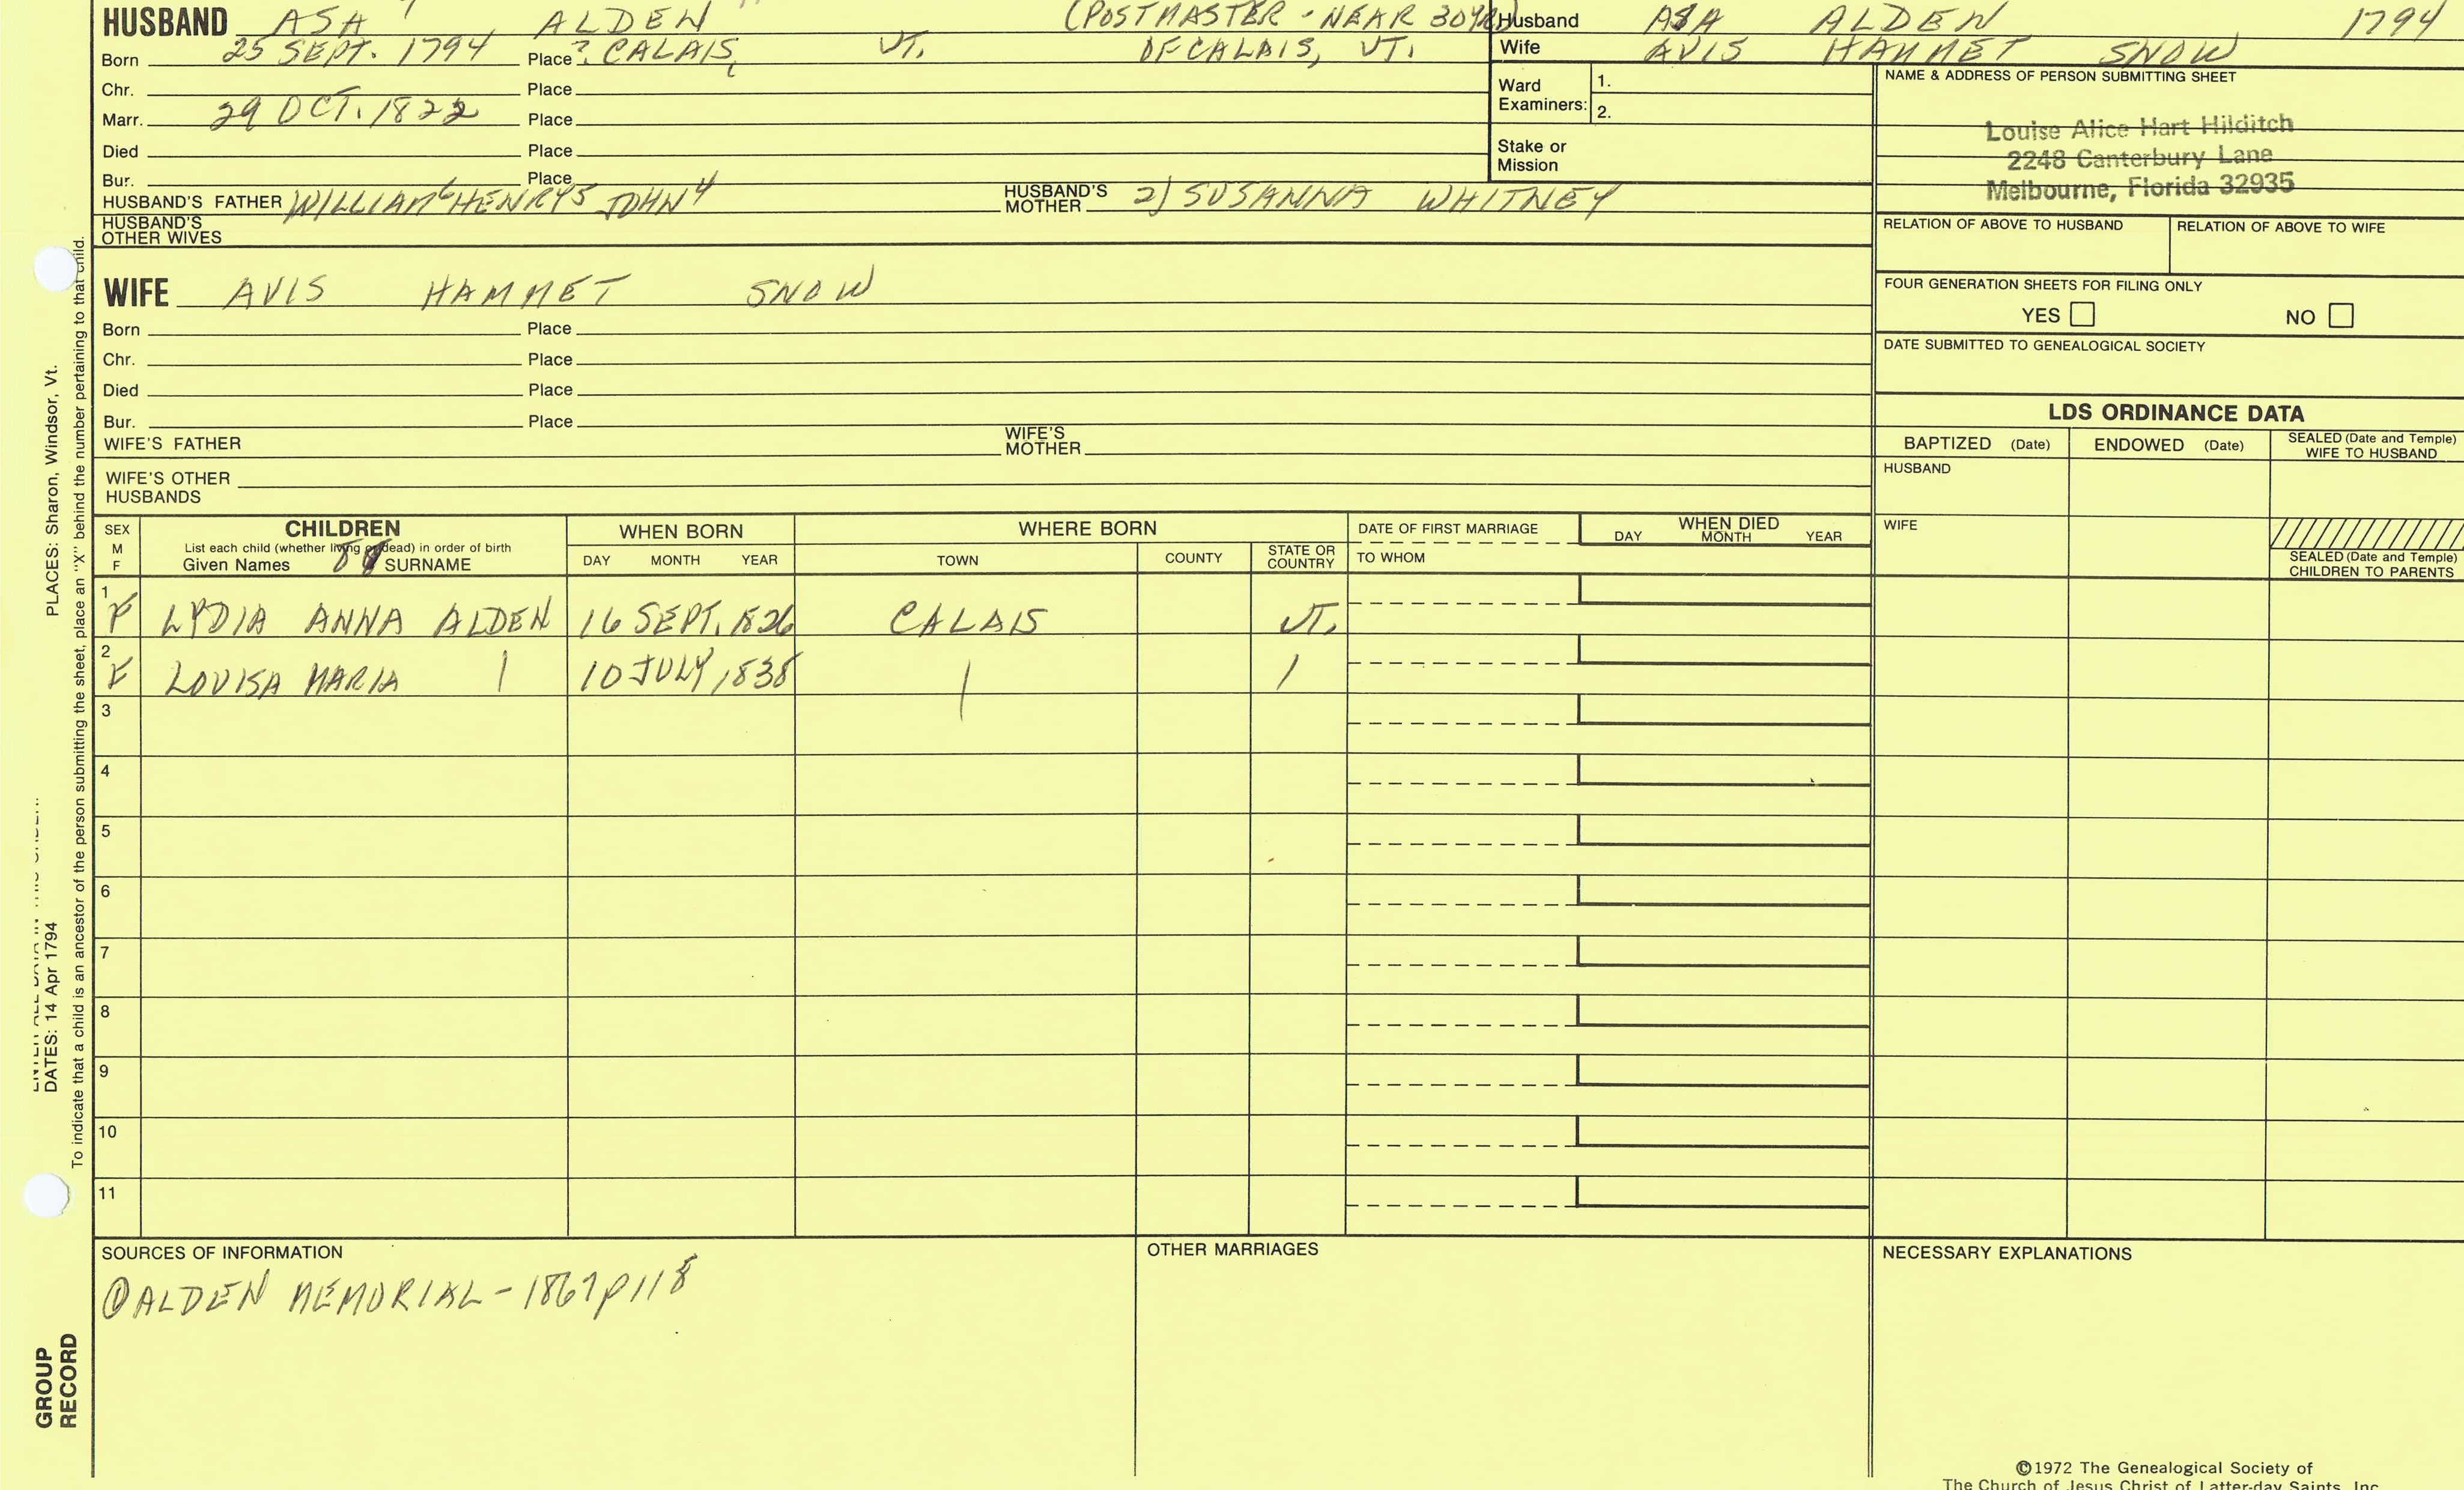 HUSBAND ASA 7 ALDEN (POSTMASTER - NEAR 30YRS)
Born 25 SEPT. 1794 Place ? CALAIS, VT. OF CALAIS, VT.
Chr. Place
Marr. 29 OCT. 1822 Place
Died Place
Bur. Place
HUSBAND'S FATHER WILLIAM6 HENRY5 JOHN4 HUSBAND'S MOTHER 2) SUSANNA WHITNEY
HUSBAND'S
OTHER WIVES
Husband ASA ALDEN 1794
Wife AVIS HAMMET SNOW
Ward
Examiners:
1.
2.
Stake or
Mission
NAME & ADDRESS OF PERSON SUBMITTING SHEET
Louise Alice Hart Hilditch
2248 Canterbury Lane
Melbourne, Florida 32935
RELATION OF ABOVE TO HUSBAND RELATION OF ABOVE TO WIFE
FOUR GENERATION SHEETS FOR FILING ONLY
YES NO
DATE SUBMITTED TO GENEALOGICAL SOCIETY
WIFE AVIS HAMMET SNOW
Born Place
Chr. Place
Died Place
Bur. Place
WIFE'S FATHER WIFE'S MOTHER
WIFE'S OTHER
HUSBANDS
LDS ORDINANCE DATA
BAPTIZED (Date) ENDOWED (Date) SEALED (Date and Temple) WIFE TO HUSBAND
HUSBAND
WIFE
SEALED (Date and Temple)
CHILDREN TO PARENTS
SEX
M
F
CHILDREN
List each child (whether living or dead) in order of birth
Given Names SURNAME
WHEN BORN
DAY MONTH YEAR
WHERE BORN
TOWN COUNTY STATE OR COUNTRY
DATE OF FIRST MARRIAGE
TO WHOM
WHEN DIED
DAY MONTH YEAR
1 F LYDIA ANNA ALDEN 16 SEPT. 1826 CALAIS VT.
2 F LOUISA MARIA 10 JULY 1838
3
4
5
6
7
8
9
10
11
SOURCES OF INFORMATION
① ALDEN MEMORIAL - 1867 p118
OTHER MARRIAGES
NECESSARY EXPLANATIONS
©1972 The Genealogical Society of
The Church of Jesus Christ of Latter-day Saints, Inc.
PLACES: Sharon, Windsor, Vt.
DATES: 14 Apr 1794
To indicate that a child is an ancestor of the person submitting the sheet, place an "X" behind the number pertaining to that child.
GROUP
RECORD